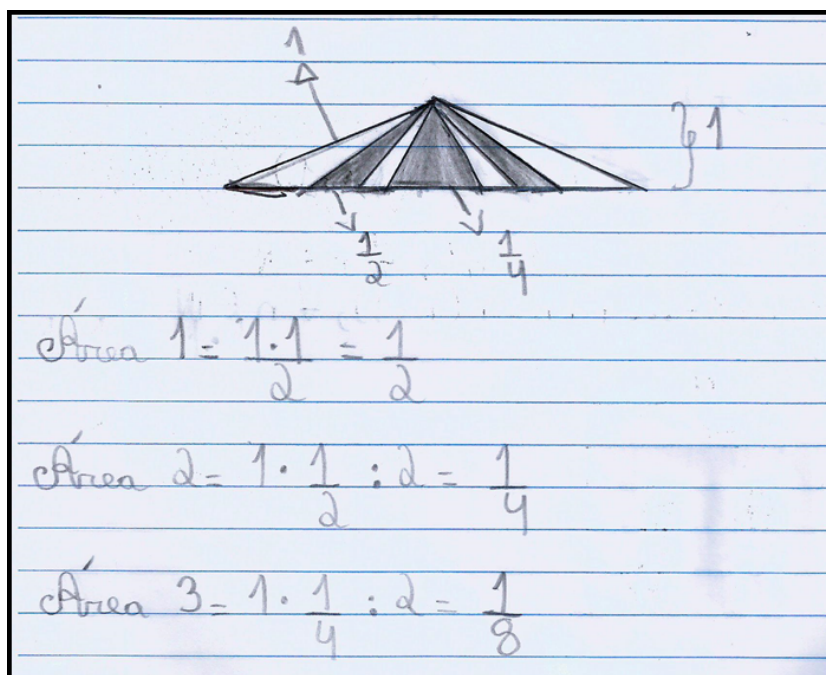 1
1
1/2 1/4
Área 1 = 1·1/2 = 1/2
Área 2 = 1·1/2 : 2 = 1/4
Área 3 = 1·1/4 : 2 = 1/8